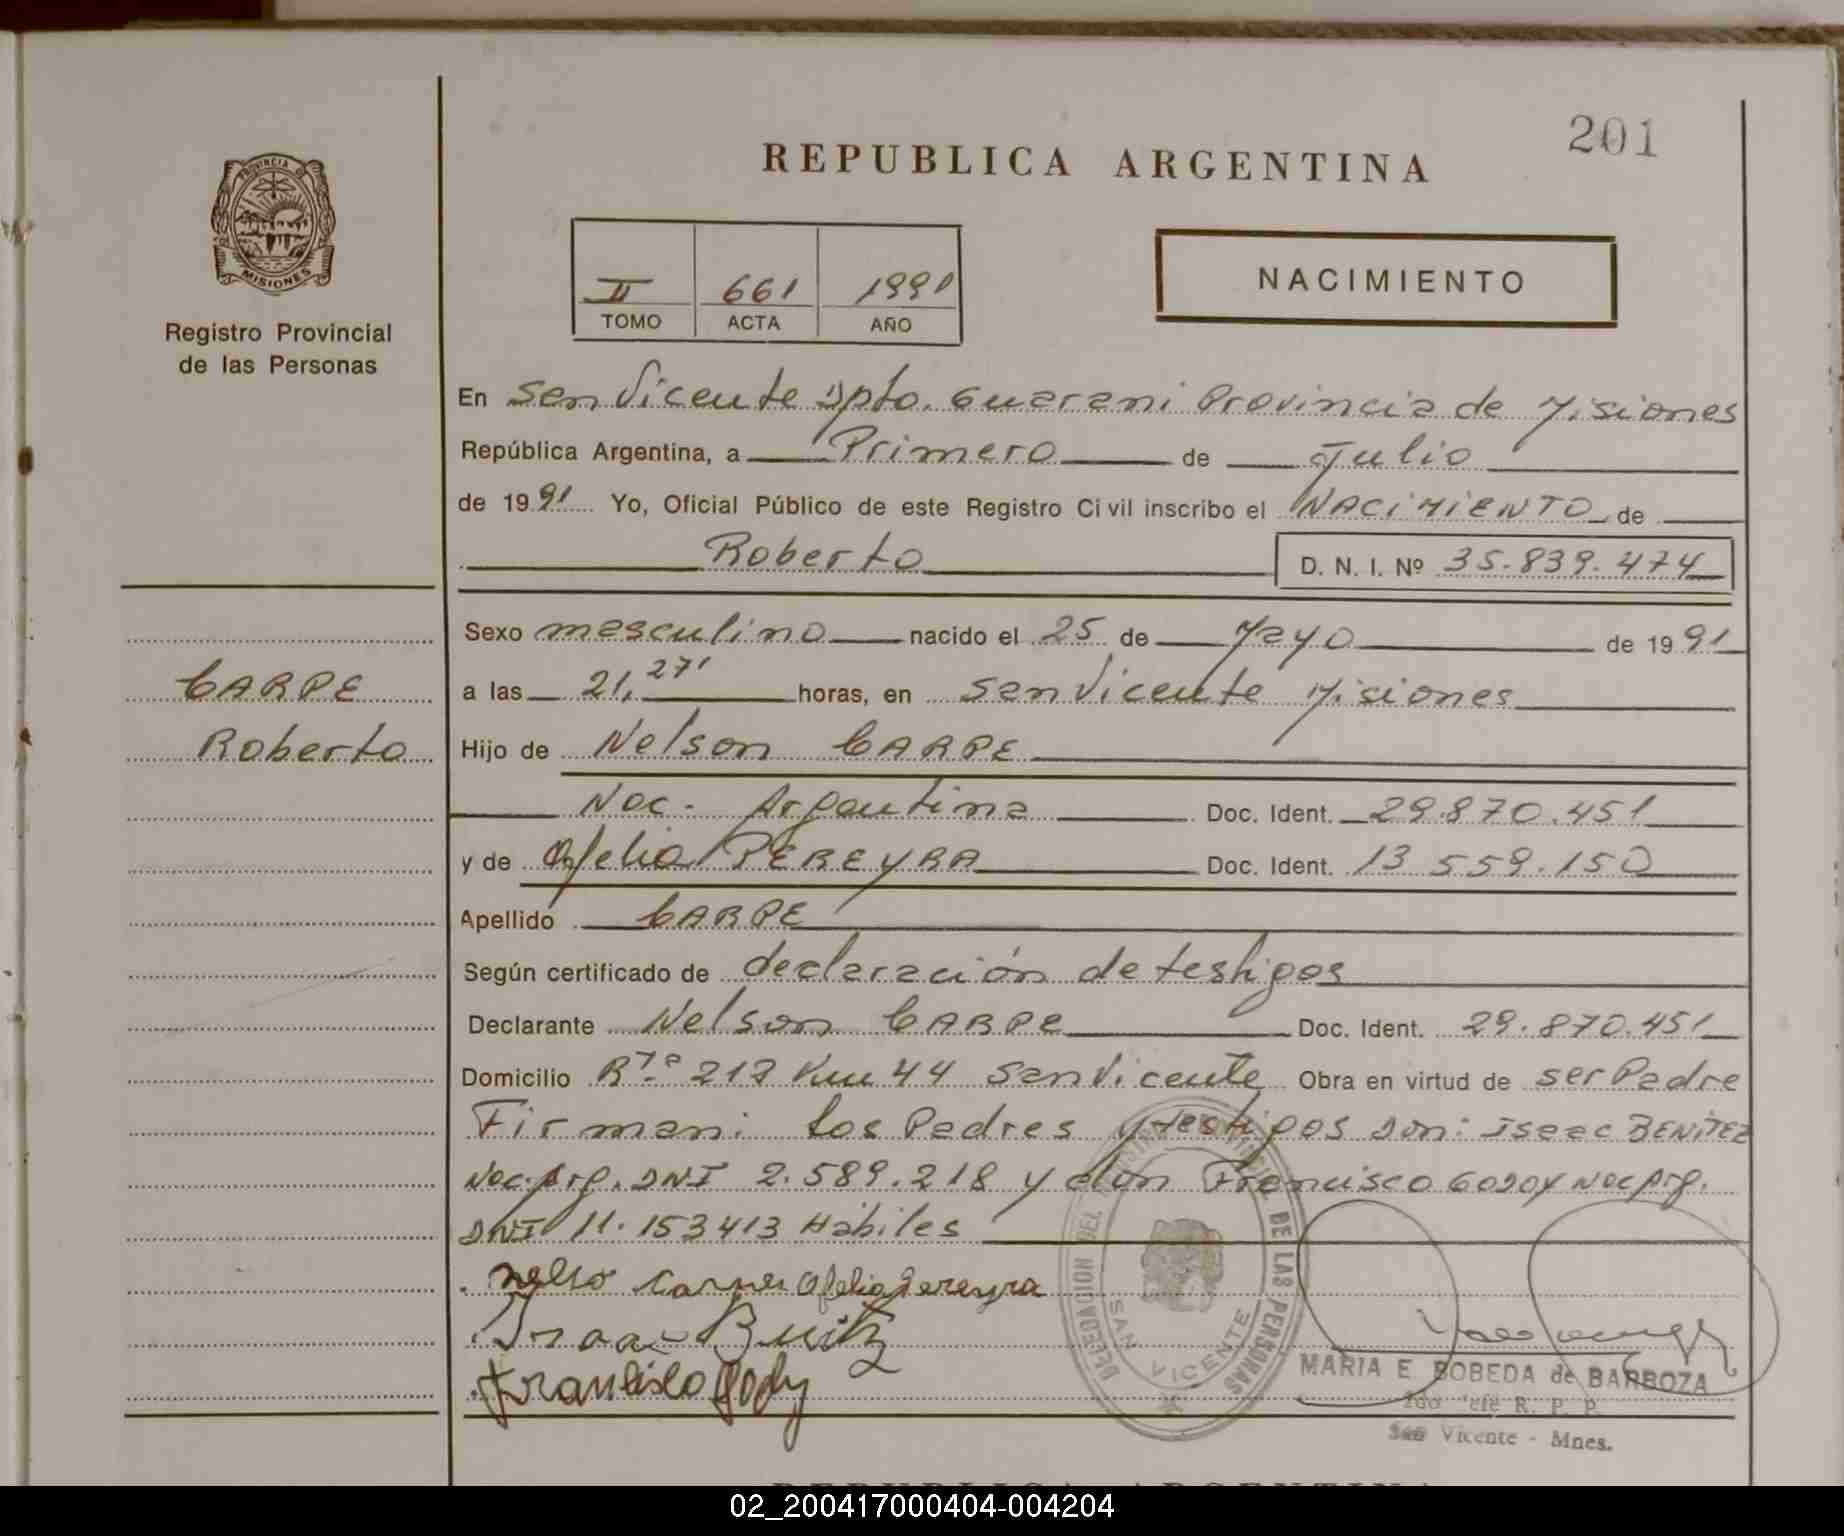 201
REPUBLICA ARGENTINA
PROVINCIA DE
MISIONES
Registro Provincial
de las Personas
II 661 1991
TOMO ACTA AÑO
NACIMIENTO
En San Vicente Dpto. Guarani Provincia de Misiones
República Argentina, a Primero de Julio
de 1991 Yo, Oficial Público de este Registro Civil inscribo el NACIMIENTO de
Roberto D. N. I. Nº 35.839.474
Sexo masculino nacido el 25 de Mayo de 1991
CARPE
Roberto
a las 21,27' horas, en San Vicente Misiones
Hijo de Nelson CARPE
Nac. Argentina Doc. Ident. 29.870.451
y de Ofelia PEREYRA Doc. Ident. 13 559.150
Apellido CARPE
Según certificado de declaración de testigos
Declarante Nelson CARPE Doc. Ident. 29.870.451
Domicilio Rta 212 Km 44 San Vicente Obra en virtud de ser Padre
Firman: Los Padres y testigos Don: Isaac BENITEZ
Nac. Arg. DNI 2.589.218 y don Francisco GODOY Nac Arg.
DNI 11.153413 Hábiles
Ofelia Pereyra
Francisco Gody
DELEGACION DEL DE LAS PERSONAS
SAN VICENTE
MARIA E BOBEDA de BARBOZA
2do Jefe R. P. P.
San Vicente - Mnes.
REPUBLICA ARGENTINA
02_200417000404-004204